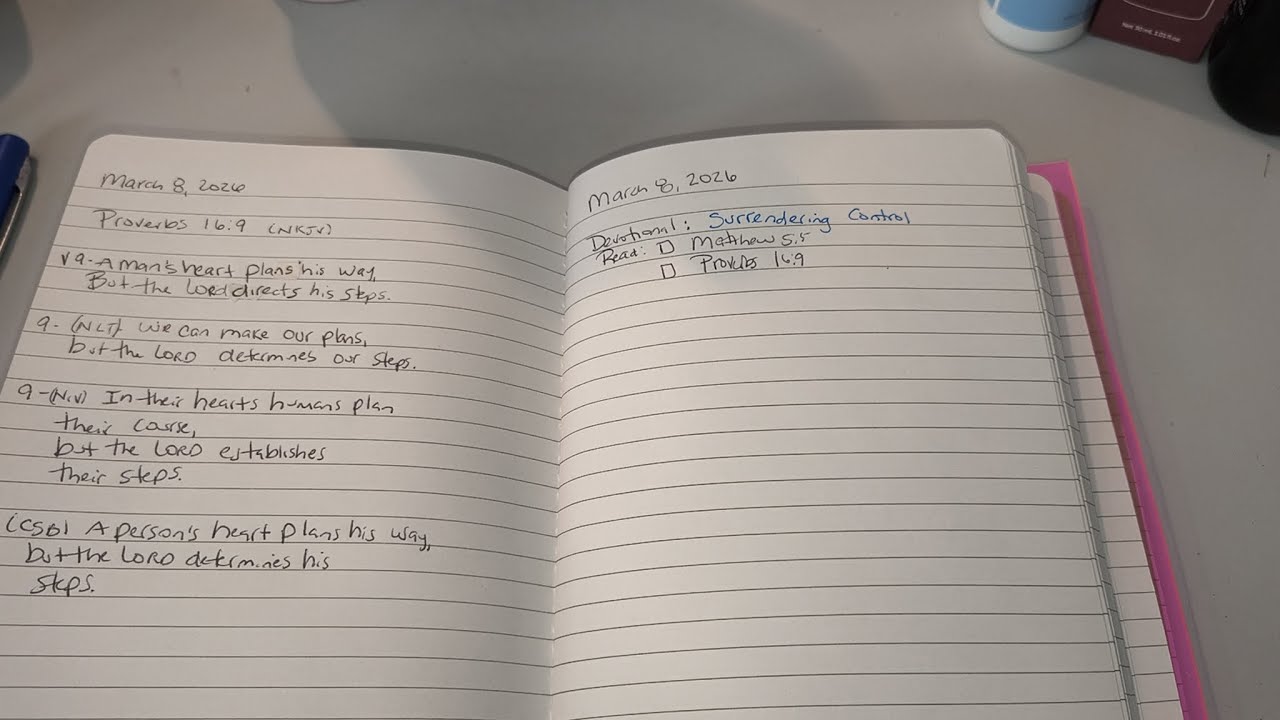 March 8, 2026
Proverbs 16:9 (NKJV)
v9- A man's heart plans his way,
But the LORD directs his steps.
9- (NLT) We can make our plans,
but the LORD determines our steps.
9-(NIV) In their hearts humans plan
their course,
but the LORD establishes
their steps.
(CSB) A person's heart plans his way,
but the LORD determines his
steps.
March 8, 2026
Devotional: Surrendering Control
Read: □ Matthew 5:5
□ Proverbs 16:9